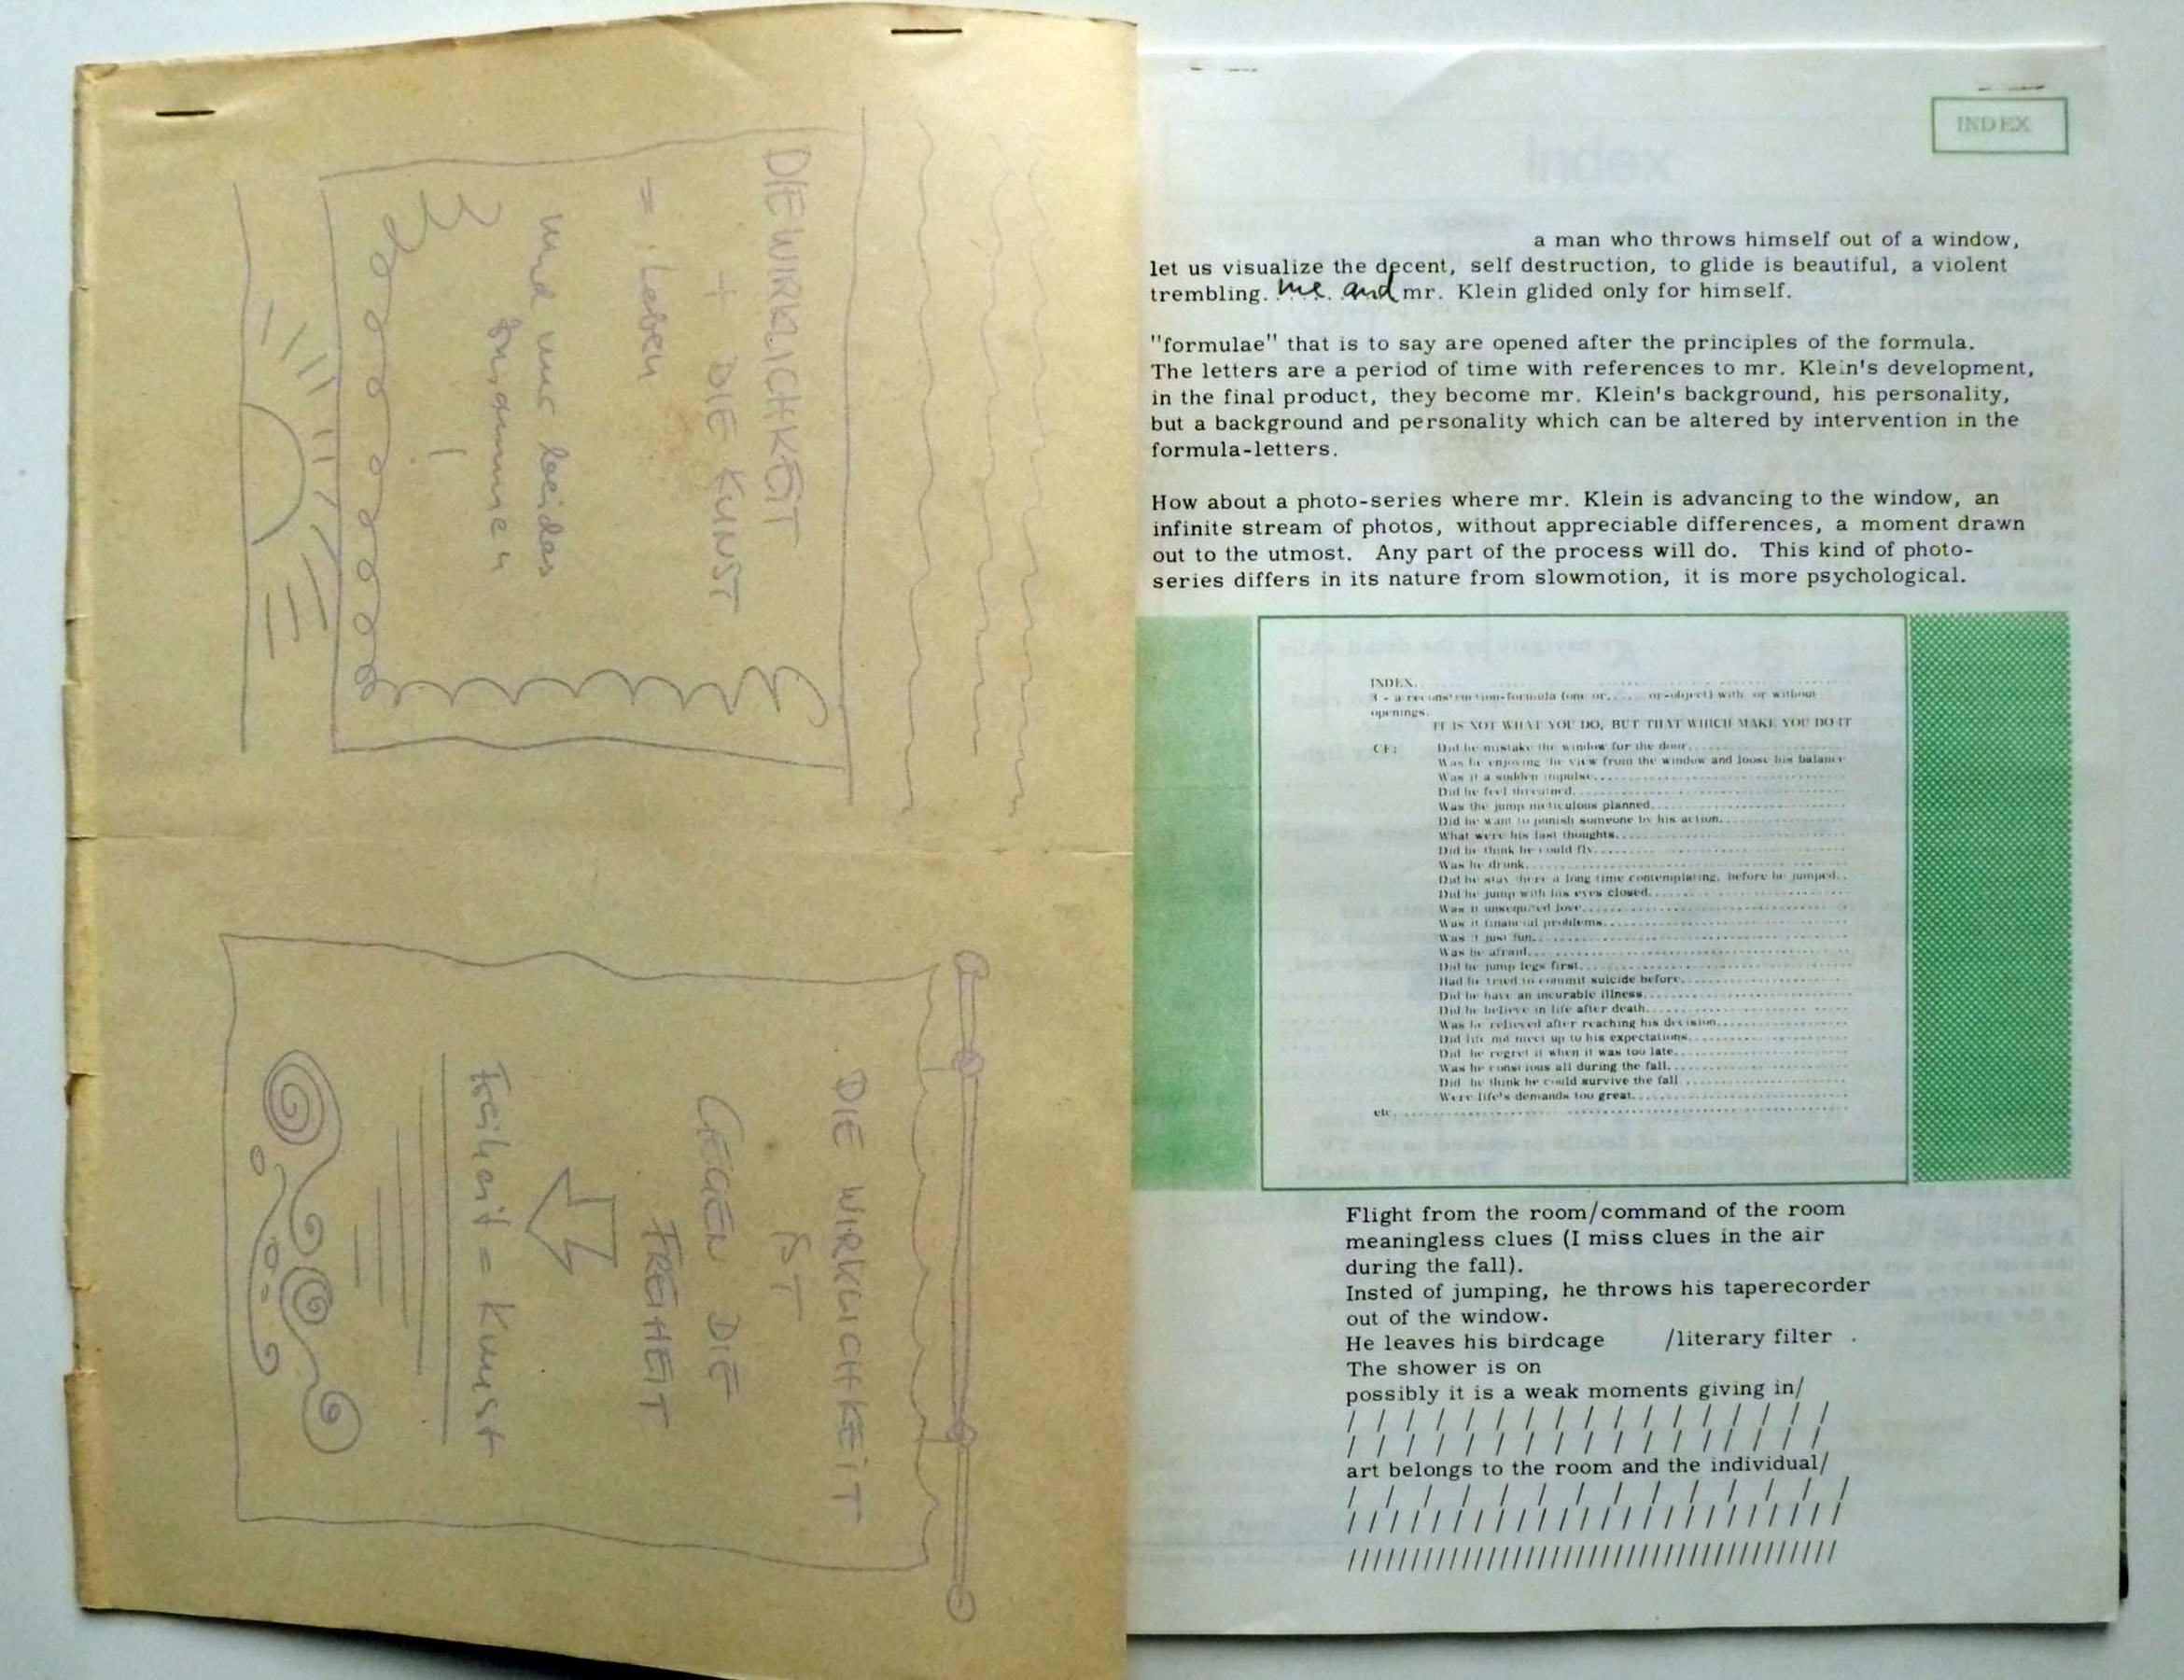 DIE WIRKLICHKEIT
+ DIE KUNST
= Leben
und nur beides
zusammen
!
DIE WIRKLICHKEIT
IST
GEGEN DIE
FREIHEIT
Freiheit = Kunst
INDEX
Index
a man who throws himself out of a window,
let us visualize the decent, self destruction, to glide is beautiful, a violent
trembling. me and mr. Klein glided only for himself.
"formulae" that is to say are opened after the principles of the formula.
The letters are a period of time with references to mr. Klein's development,
in the final product, they become mr. Klein's background, his personality,
but a background and personality which can be altered by intervention in the
formula-letters.
How about a photo-series where mr. Klein is advancing to the window, an
infinite stream of photos, without appreciable differences, a moment drawn
out to the utmost. Any part of the process will do. This kind of photo-
series differs in its nature from slowmotion, it is more psychological.
INDEX.
- a reconstruction-formula (one or...... or-object) with or without
openings.
IT IS NOT WHAT YOU DO, BUT THAT WHICH MAKE YOU DO IT
CF: Did he mistake the window for the door
Was he enjoying the view from the window and loose his balance
Was it a sudden impulse
Did he feel threatened
Was the jump meticulous planned
Did he want to punish someone by his action
What were his last thoughts
Did he think he could fly
Was he drunk
Did he stay there a long time contemplating, before he jumped
Did he jump with his eyes closed
Was it unrequited love
Was it financial problems
Was it just fun
Was he afraid
Did he jump legs first
Had he tried to commit suicide before
Did he have an incurable illness
Did he believe in life after death
Was he relieved after reaching his decision
Did life not meet up to his expectations
Did he regret it when it was too late
Was he conscious all during the fall
Did he think he could survive the fall
Were life's demands too great
etc.
Flight from the room/command of the room
meaningless clues (I miss clues in the air
during the fall).
Insted of jumping, he throws his taperecorder
out of the window.
He leaves his birdcage /literary filter .
The shower is on
possibly it is a weak moments giving in/
/ / / / / / / / / / / / / / / / /
/ / / / / / / / / / / / / / / / /
art belongs to the room and the individual/
/ / / / / / / / / / / / / /
/ / / / / / / / / / / / / / / / / / / / / / /
///////////////////////////////////////